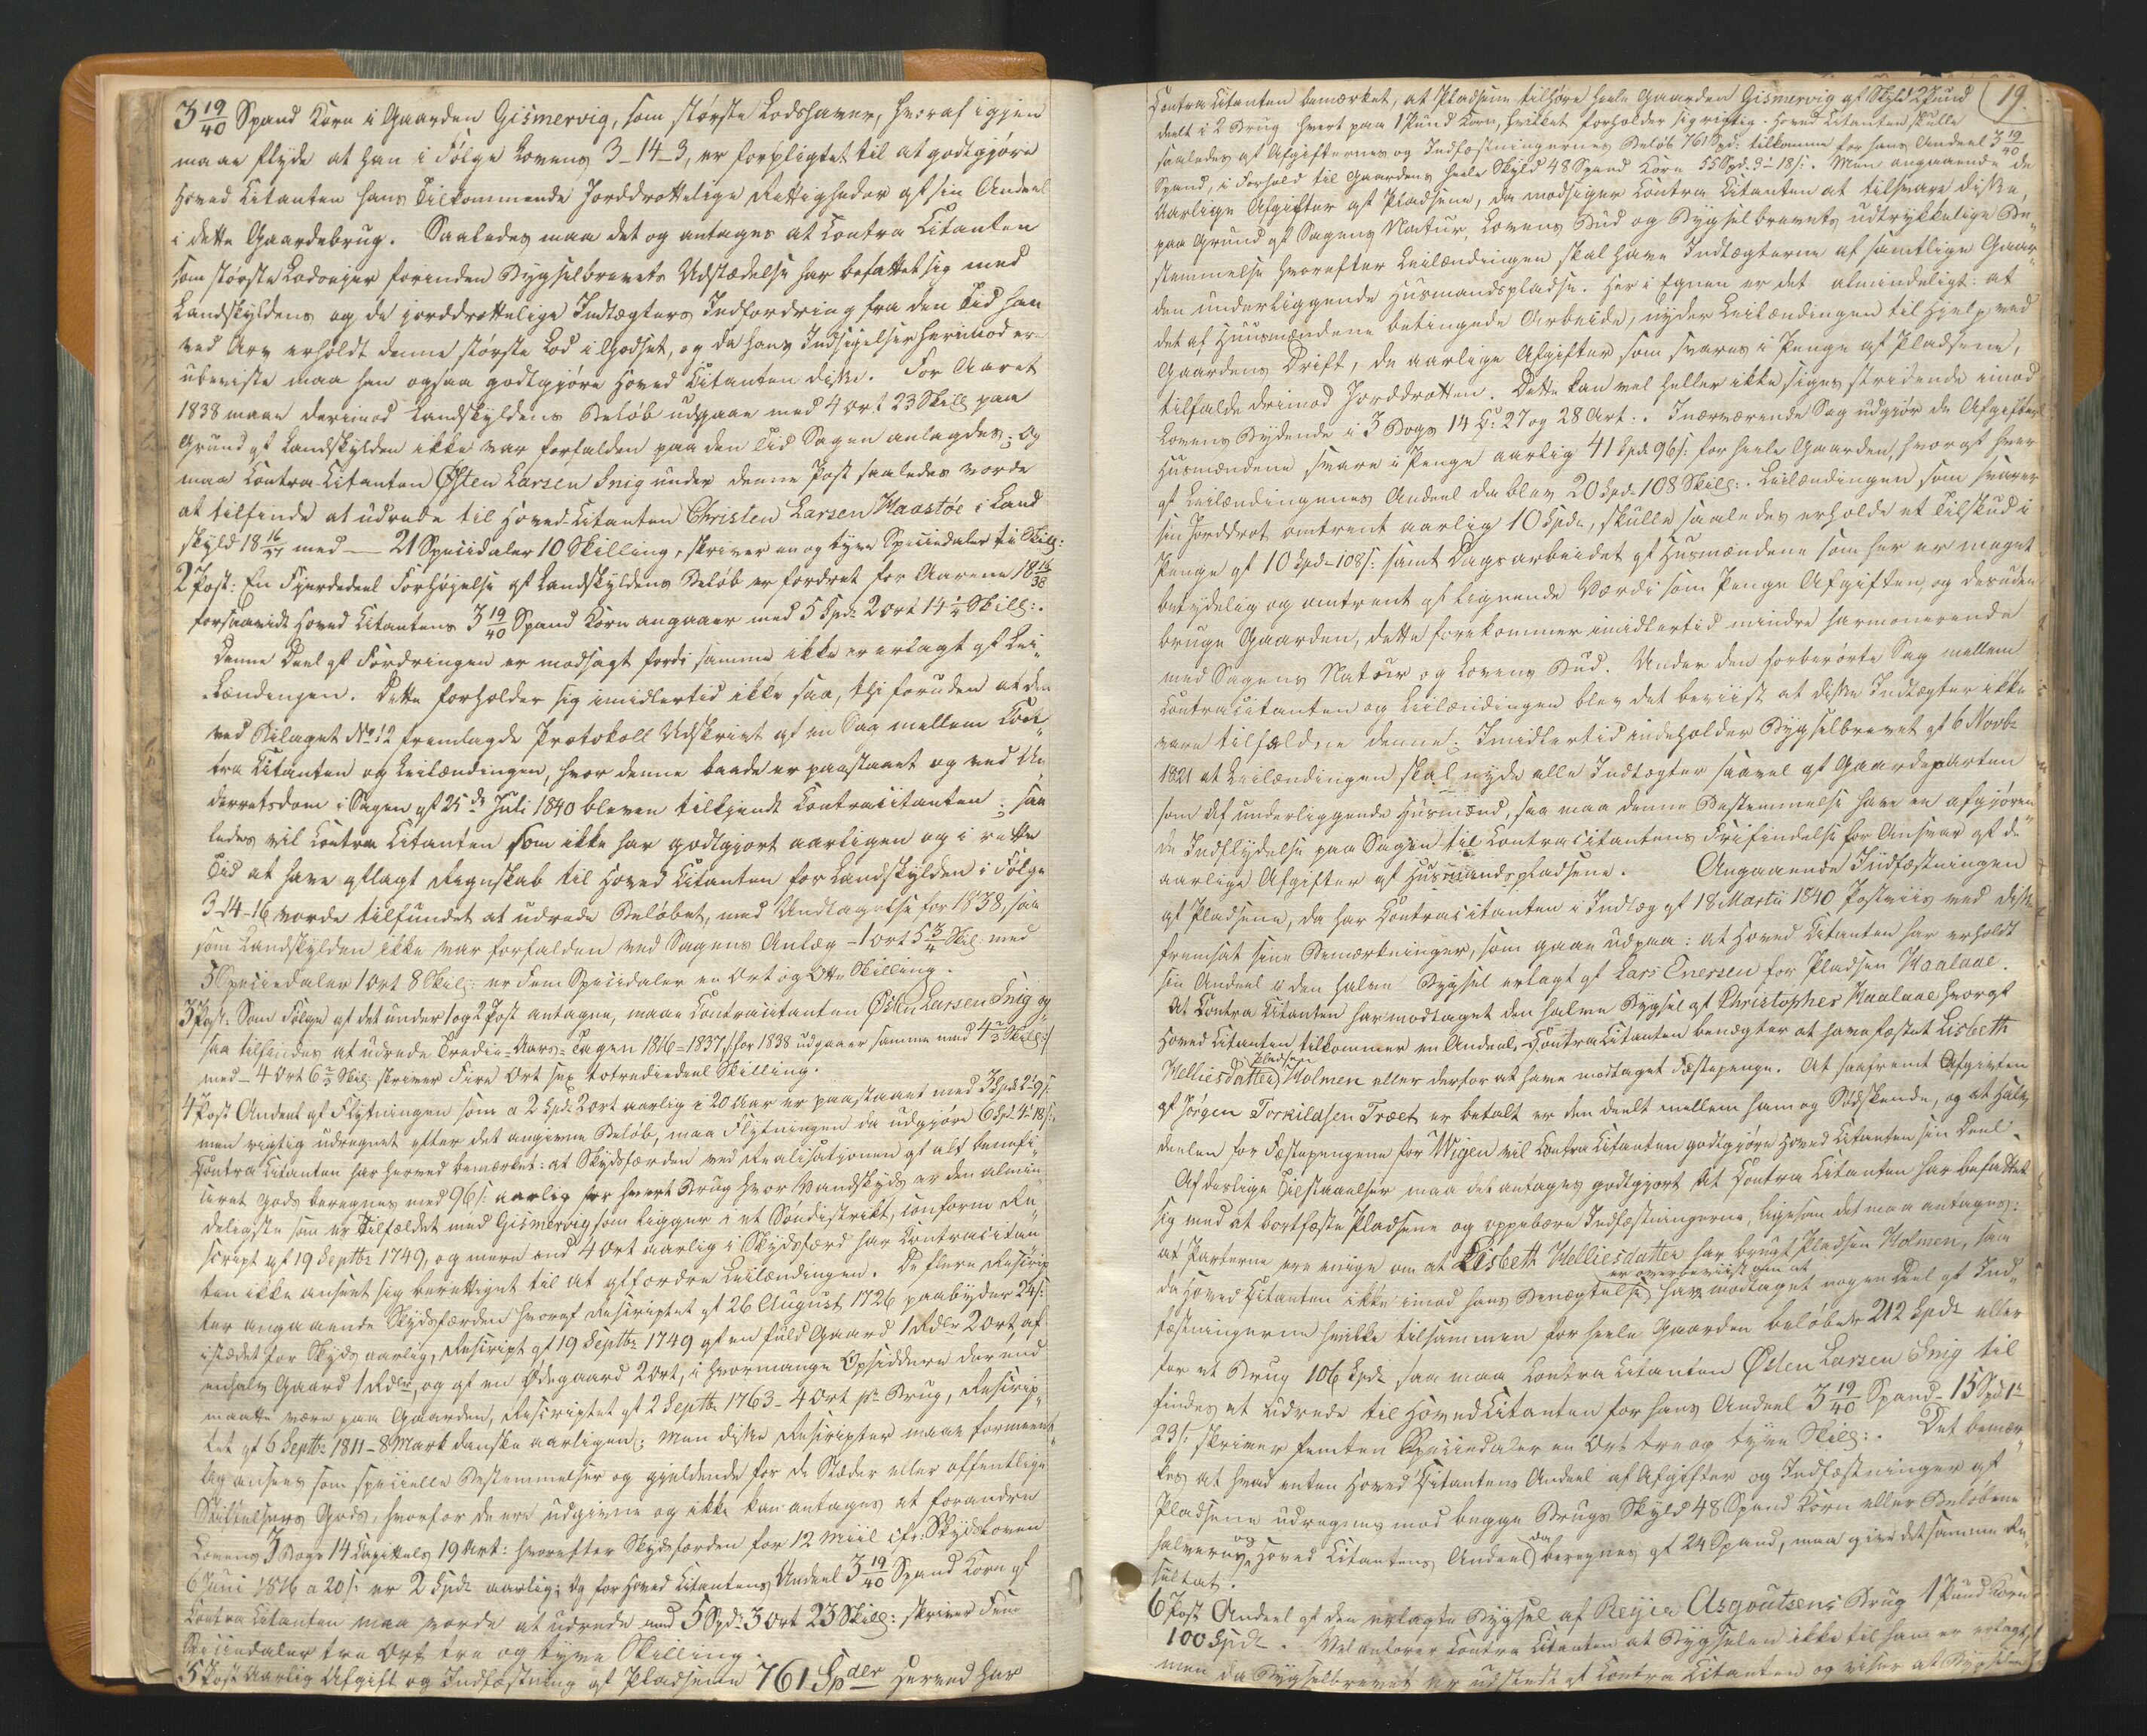 3 19/40 Spand Korn i Gaarden Gismervig, som største Lodshaver, hvoraf igjen
maae flyde at han i Følge Lovens 3-14-3, er forpligtet til at godtgjøre
Hoved Citanten hans Tilkommende Jorddrottelige Rettigheder af sin Andeel
i dette Gaardebrug. Saaledes maa det og antages at Contra Citanten
som største Lodseyer forinden Bygselbrevets Udstædelse har befattet sig med
Landskyldens og de jorddrottelige Indtægters Indfordring fra den Tid han
ved Arv erholdt denne største Lod i Godset, og da hans Indsigelser herimod er
ubeviste maa han ogsaa godtgjøre Hoved Citanten disse. For Aaret
1838 maae derimod Landskyldens Beløb udgaae med 4 ort 23 Skill paa
Grund af Landskylden ikke var forfalden paa den Tid Sagen anlagdes; Og
maa Contra-Citanten Østen Larsen Snig under denne Post saaledes vorde
at tilfinde at udrede til Hoved-Citanten Christen Larsen Haastøe i Land
skyld 18 16/37 med — 21 Speciedaler 10 Skilling, skriver en og tyve Speciedaler ti Skill:
2 Post: En Fjerdedeel Forhøjelse af Landskyldens Beløb er fordret for Aarene 18 16/38
forsaavidt Hoved Citantens 3 19/40 Spand Korn angaaer med 5 Spd 2 ort 14 1/4 Skill:.
Denne Deel af Fordringen er modsagt fordi samme ikke er erlagt af Lei„
lændingen. Dette forholder sig imidlertid ikke saa, thi foruden at den
ved Bilaget No 12 fremlagde Protokoll Udskrivt af en Sag mellem Con„
tra Citanten og Leilændingen, hvor denne baade er paastaaet og ved Un„
derretsdom i Sagen af 25de Juli 1840 bleven tilkjendt Contracitanten; saa
ledes vil Contra Citanten som ikke har godtgjort aarligen og i rette
Tid at have aflagt Regnskab til Hoved Citanten for Landskylden i Følge
3-14-16 vorde tilfundet at udrede Beløbet, med Undtagelse for 1838, saa
som Landskylden ikke var forfalden ved Sagens Anlæg - 1 ort 5 3/4 Skil: med
5 Speciedaler 1 Ort 8 Skil: er Fem Speciedaler en Ort og Otte Skilling.
3 Post: Som Følge af det under 1 og 2 Post antagne, maae Contracitanten Østen Larsen Snig og„
saa tilfindes at udrede Tredie-Aars-Tagen 1816-1837, /: for 1838 udgaaer samme med 4 2/3 Skill:/
med - 4 Ort 6 2/3 Skil: skriver Fire Ort sex totrediedeel Skilling.
4 Post Andeel af Flytningen som a 2 Spd 2 ort aarlig i 20 Aar er paastaaet med
men rigtig udregnet efter det angivne Beløb, maa Flytningen da udgjøre 6 Spd 4 18 s:,
Contra Citanten har herved bemærket: at Skydsfærden ved Realisationen af alt benefi„
ceret Gods beregnes med 96 s: aarlig for hvert Brug hvor Vandskyds er den almin„
deligste som er Tilfældet med Gismervig som ligger i et Søndistrikt, conform Re„
script af 19 Septbr 1749, og mere end 4 Ort aarlig i Skydsfærd har Contracitan
ten ikke anseet sig berettiget til at affordre Leilændingen. De flere Rescrip
ter angaaende Skydsfærden hvoraf Rescriptet af 26 August 1726 paabyder 24 s:
istædet for Skyds aarlig, Rescript af 19 Septbr 1749 af en fuld Gaard 1 Rdlr 2 ort, af
enhalv Gaard 1 Rdlr, og af en Ødegaard 2 Ort, i hvormange Opsiddere der end
maatte være paa Gaarden, Rescriptet af 2 Septbr 1763 - 4 Ort pr Brug, Rescrip„
tet af 6 Septbr 1811 - 8 Mark danske aarligen; Men disse Rescripter maae formeent„
lig ansees som specielle Bestemmelser og gjeldende for de Stæder eller offentlige
Stiftelsers Gods, hvorfor de ere udgivne og ikke kan antages at forandre
Lovens 3 Bogs 14 Capittels 19 Art: hvorefter Skydsfærden for 12 Miil cfr: Skydsloven
6 Juni 1816 a 20 s: er 2 Spd aarlig; Og for Hoved Citantens Andeel 3 19/40 Spand Korn af
Contra Citanten maa vorde at udrede med 5 Spd 3 Ort 23 Skill: skriver Fem
Speciedaler tre Ort tre og tyve Skilling.
5 Post Aarlig Afgift og Indfæstning af Pladsene 761 Spdlr Herved har
19.
Contra Citanten bemærket, at Pladsene tilhøre heele Gaarden Gismervig af Skyld 2 Pund
deelt i 2 Brug hvert paa 1 Pund Korn, hvilket forholder sig rigtig. Hoved Citanten skulle
saaledes af Afgifternes og Indfæstningernes Beløb 761 Spd: tilkomme for hans Andeel 3 19/40
Spand, i Forhold til Gaardens heele Skyld 48 Spand Korn 55 Spd. 18 s:. Men angaaende de
Aarlige Afgifter af Pladsene, da modsiger Contra Citanten at tilsvare disse,
paa Grund af Sagens Natur, Lovens Bud og Bygselbrevets udtrykkelige Be„
stemmelse hvorefter Leilændingen skal have Indtægterne af samtlige Gaar„
den underliggende Husmandspladse. Her i Egnen er det almindeligt: at
det af Huusmændene betingede Arbeide, nyder Leilændingen til Hjelp ved
Gaardens Drift, de aarlige Afgifter som svares i Penge af Pladsene,
tilfalde derimod Jorddrotten. Dette kan vel heller ikke siges stridende imod
Lovens Bydende i 3 Bogs 14 C: 27 og 28 Art:. I nærværende Sag udgiør de Afgifter
Husmændene svare i Penge aarlig 41 Spd 96 s: for heele Gaarden, hvoraf hver
af Leilændingenes Andeel da blev 20 Spd - 108 Skill:. Leilændingen som svarer
sin Jorddrot omtrent aarlig 10 Spd, skulle saaledes erholde et Tilskud i
Penge af 10 Spd - 108 s: samt Dagsarbeidet af Husmændene som her er meget
betydelig og omtrent af lignende Værdi som Penge Afgiften, og desuden
bruge Gaarden, dette forekommer imidlertid mindre harmonerende
med Sagens Natuur og Lovens Bud. Under den forberørte Sag mellem
Contracitanten og Leilændingen blev det beviist at disse Indtægter ikke
vare tilfældne denne; Imidlertid indeholder Bygselbrevet af 6 Novbr
1821 at Leilændingen skal nyde alle Indtægter saavel af Gaardeparten
som af underliggende Husmænd, saa maa denne Bestemmelse have en afgjøren„
de Indflydelse paa Sagen til Contracitantens Frifindelse for Ansvar af de
aarlige Afgifter af Husmandspladsene. Angaaende Indfæstningen
af Pladsene, da har Contracitanten i Indlæg af 18 Martii 1840 Postviis ved disse
fremsat sine Bemærkninger, som gaae ud paa: at Hoved Citanten har erholdt
sin Andeel i den halve Bygsel erlagt af Lars Enersen for Pladsen Haalaae.
At Contra Citanten har modtaget den halve Bygsel af Christopher Haalaae hvoraf
Hoved Citanten tilkommer en Andeel. Contra Citanten benægter at have fæstet Lisbeth
Helliesdatter Pladsen Holmen eller derfor at have modtaget Fæstepenge. At saafremt Afgivten
af Jørgen Torkildsen Træet er betalt er den deelt mellem ham og Sødskende, og at halv
deelen for Fæstepengene for Wigen vil Contra Citanten godtgjøre Hoved Citanten sin Deel
Af deslige Tilstaaelser maa det antages godtgjort at Contra Citanten har befattet
sig med at bortfæste Pladsene og oppebære Indfæstningerne, ligesom det maa antages:
at Parterne ere enige om at Lisbeth Helliesdatter har brugt Pladsen Holmen, som
da Hoved Citanten ikke imod hans Benægtelse er overbeviist om at have modtaget nogen Deel af Ind„
fæstningerne hvilke tilsammen for heele Gaarden beløber 212 Spd eller
for et Brug 106 Spd saa maa Contra Citanten Østen Larsen Snig til
findes at udrede til Hoved Citanten for hans Andeel 3 19/40 Spand - 15 Spd 1
23 s: skriver femten Speciedaler en Ort tre og tyve Skill:. Det bemær„
kes at hvad enten Hoved Citantens Andeel af Afgifter og Indfæstninger af
Pladsene udregnes mod begge Brugs Skyld 48 Spand Korn eller Beløbene
halveres og Hoved Citantens Andeel da beregnes af 24 Spand, maa give det samme Re„
sultat.
6 Post Andeel af den erlagte Bygsel af Reyer Asgoutsens Brug 1 Pund Korn
100 Spd. Vel anfører Contra Citanten at Bygselen ikke til ham er erlagt,
men da Bygselbrevet er udstedt af Contra Citanten og viser at Bygselen